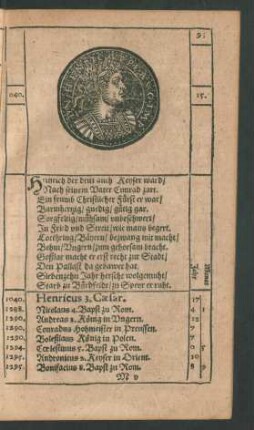 91
040.
15.
Heinrich der dritt auch Keyser ward/
Nach seinem Vatter Cunrad zart.
Ein frumb Christlicher Fürst er war/
Barmhertzig/ gnedig/ gütig gar.
Sorgfeltig/ mühsam/ unbeschwert/
In Fried und Streit/ wie mans begert.
Lothring/ Bäyern/ bezwang mit macht/
Behm/ Ungern/ zum gehorsam bracht.
Goßlar macht er erst recht zur Stadt/
Den Pallast da gebawet hat.
Siebenzehn Jahr herscht wolgemuht/
Starb zu Bodfeldt/ zu Speyr er ruht.
Jahr Monat
1040. Henricus 3. Cæsar. 17
1288. Nicolaus 4. Bapst zu Rom. 4 1
1290. Andreas 2. König in Ungern. 12
1290. Conradus Hohmeister in Preussen. 7
1290. Boleslaus König in Polen. 7
1294. Cœlestinus 5. Bapst zu Rom. 0 5
1295. Andronicus 2. Keyser in Orient.
1295. Bonifacius 8. Bapst zu Rom. 8 9
M v